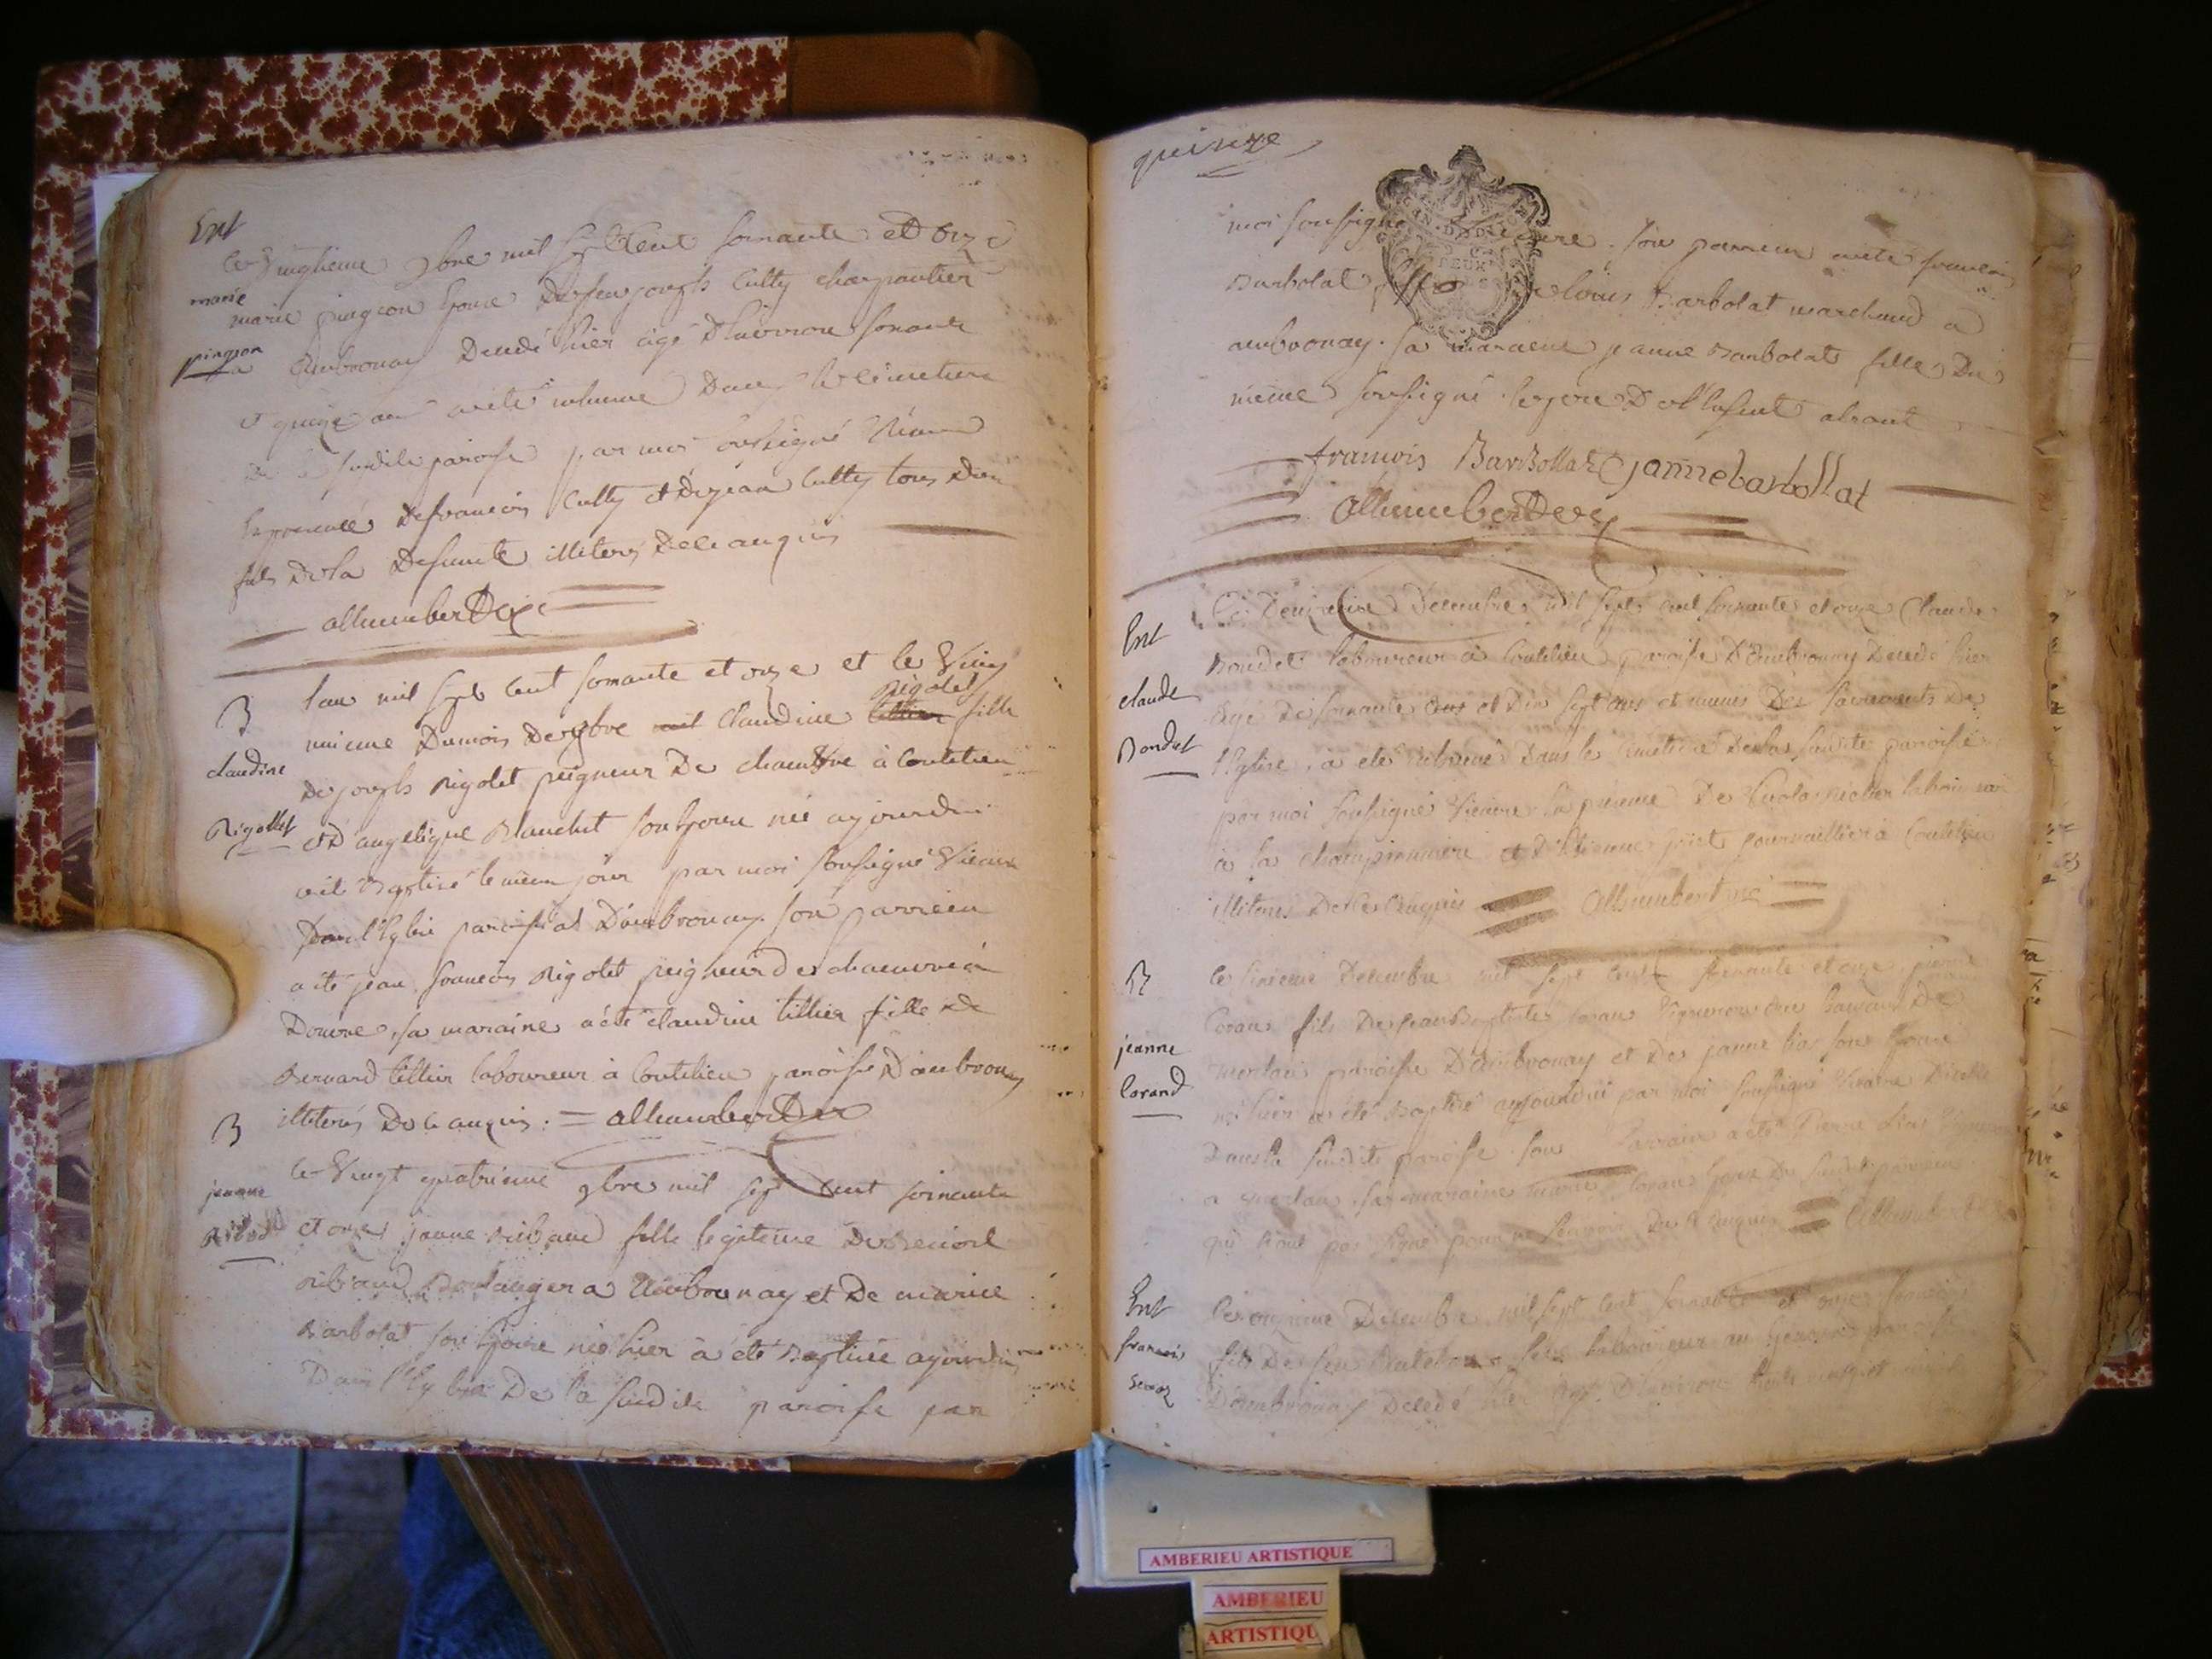 Ent
marie
pingeon
le vingtieme 9bre mil sept Cent soixante et onze
marie pingeon Epouse De feu joseph Cutty charpantier
a Ambronay Decedé hier agé D'environ soixante
et quinze ans a été inhumé Dans le cimetiere
de la susdite paroisse par moi soussigné vicaire
En presence De francois Cutty et De jean Cutty tous Deux
fils De la Defunte illiterés De ce enquis
allhumbert vic
B
claudine
Rigollet
l'an mil sept Cent soixante et onze et le Vingt
unieme Du mois De 9bre mil claudine tillier Rigolet fille
De joseph Rigolet peigneur De chanvre à Coutelieu
et D'angelique Blanchet son Epouse née aujourdhui
a été Baptisé le même jour par moi soussigné Vicaire
Dans l'Eglise paroissial D'ambronay. son parrein
a été jean francois Rigolet peigneur de chanvre à
Douvre, sa maraine a été claudine tillier fille de
Bernard tillier laboureur à Coutelieu paroisse D'ambronay
illiterés De ce enquis. = allhumbert vic
B
jeanne
Ribod
le Vingt quatrieme 9bre mil sept Cent soixante
et onze jeanne Ribaud fille legitime De Benoit
ribaud Boulanger a Ambronay et De marie
Barbolat son Epouse née hier à été Baptisée aujourdhui
Dans l'Eglise De la susdite paroisse par
quinze
moi soussigné Vicaire. son parrein a été francois
Barbolat fils De louis Barbolat marchand a
ambronay. sa maraine jeanne Barbolat fille Du
même soussigné. le pere De l'Enfent absent
françois BarBollat janne barbollat
allhumbert vic
Ent
claude
Bondet
Le Deuxieme Decembre mil sept cent soixante et onze Claude
Bondet laboureur à Coutelieu paroisse D'Ambronay Decedé hier
agé De soixante ans et Dix sept ans et munis Des sacrements De
l'Eglise, a été inhumé Dans le cimetiere De la susdite paroisse
par moi soussigné Vicaire En presence De laboureur
à la championniere et D'Etienne à Coutelieu
illiterés De ce Enquis = Allhumbert vic =
B
jeanne
Corand
le sixieme Decembre mil sept cent soixante et onze pierre
Coran fils De jean Baptiste Coran Vigneron au hameau De
merlan paroisse D'ambronay et De janne lias son Epouse
né hier a été Baptisé aujourdhui par moi soussigné Vicaire
Dans la susdite paroisse. son Parrain a été Pierre lias Vigneron
a merlan. sa maraine marie Coran
qui n'ont pas signé pour ne sçavoir De ce Enquis = Allhumbert vic
Ent
francois
Seve
le onzieme Decembre mil sept cent soixante et onze francois
fils De feu Seve laboureur au paroisse
D'ambronay Decedé hier agé D'environ
AMBERIEU ARTISTIQUE
AMBERIEU
ARTISTIQU